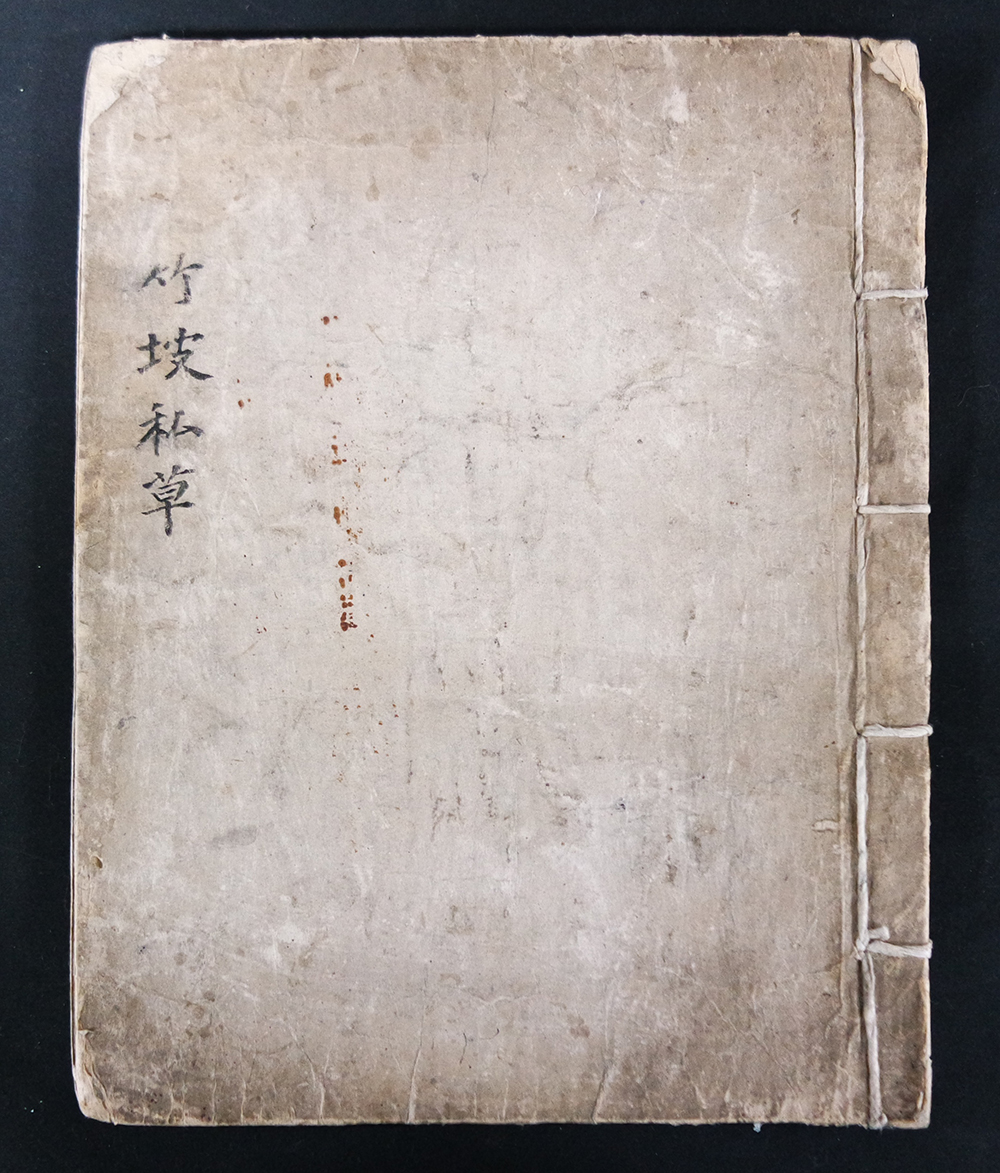 竹坡私草